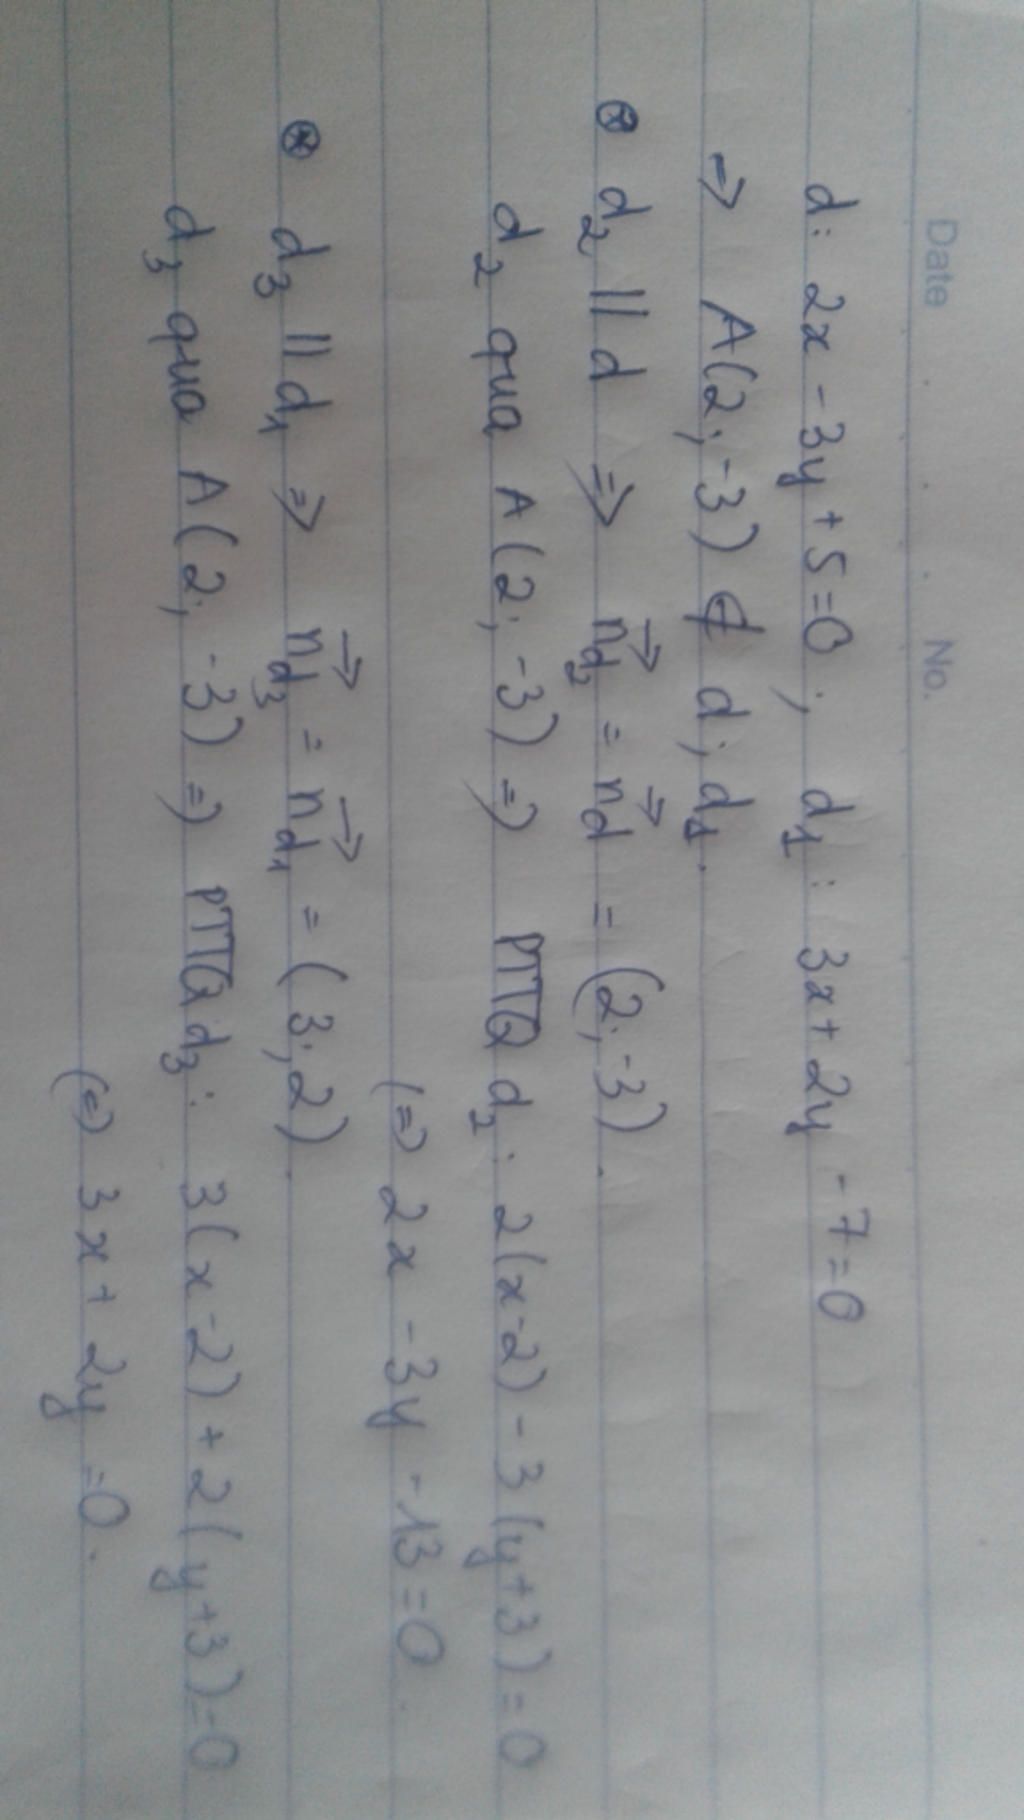 Date No.
d: 2x - 3y + 5 = 0 ; d₁ : 3x + 2y - 7 = 0
=> A(2; -3) ∉ d ; d₁.
⊛ d₂ // d => n⃗d₂ = n⃗d = (2; -3).
d₂ qua A(2; -3) => PTTQ d₂ : 2(x-2) - 3(y+3) = 0
(=) 2x - 3y - 13 = 0.
⊛ d₃ // d₁ => n⃗d₃ = n⃗d₁ = (3; 2).
d₃ qua A(2; -3) => PTTQ d₃ : 3(x-2) + 2(y+3) = 0
(=) 3x + 2y = 0.